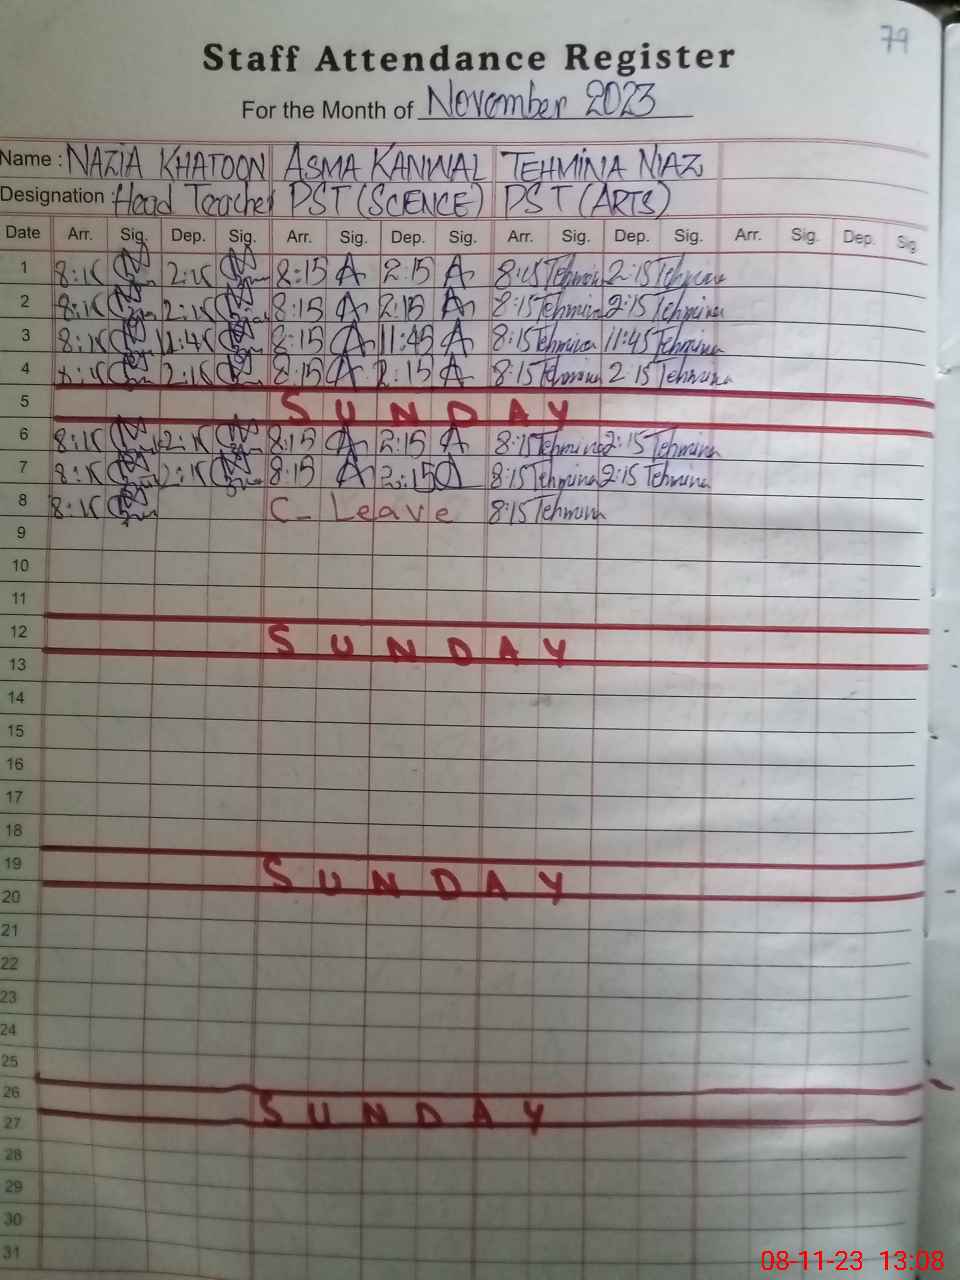 79
Staff Attendance Register
For the Month of November 2023
Name : NAZIA KHATOON ASMA KANWAL TEHMINA NIAZ
Designation : Head Teacher PST (SCIENCE) PST (ARTS)
Date Arr. Sig. Dep. Sig. Arr. Sig. Dep. Sig. Arr. Sig. Dep. Sig. Arr. Sig. Dep. Sig.
1 8:15 2:15 8:15 A 2:15 A 8:15 Tehmina 2:15 Tehmina
2 8:15 2:15 8:15 A 2:15 A 8:15 Tehmina 2:15 Tehmina
3 8:15 11:45 8:15 A 11:45 A 8:15 Tehmina 11:45 Tehmina
4 8:15 2:15 8:15 A 2:15 A 8:15 Tehmina 2:15 Tehmina
5 SUNDAY
6 8:15 2:15 8:15 A 2:15 A 8:15 Tehmina 2:15 Tehmina
7 8:15 2:15 8:15 A 2:15 A 8:15 Tehmina 2:15 Tehmina
8 8:15 C- Leave 8:15 Tehmina
9
10
11
12 SUNDAY
13
14
15
16
17
18
19 SUNDAY
20
21
22
23
24
25
26 SUNDAY
27
28
29
30
31
08-11-23 13:08